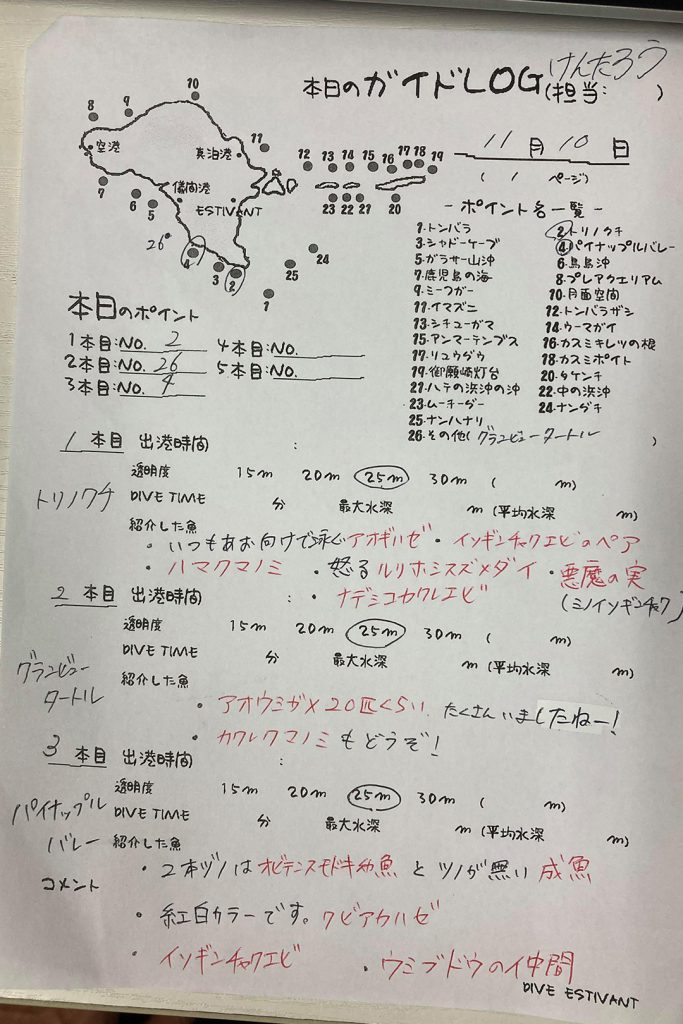 本日のガイドLOG(担当:けんたろう)
11月10日
(1ページ)
10
8
9
空港
真泊港
11
12
13
14
15
16
17
18
19
7
6
5
儀間港
ESTIVANT
23
22
21
20
26°
4
3
2
25
24
1
-ポイント名一覧-
1・トンバラ
2・トリノクチ
3・シャドーケーブ
4・パイナップルバレー
5・ガラサー山沖
6・鳥島沖
7・鹿児島の海
8・プレアクエリアム
9・ミーフガー
10・月面空間
11・イマズニ
12・トンバラザシ
13・シチューガマ
14・ウーマガイ
15・アンマーテンブス
16・カスミキレツの根
17・リュウグウ
18・カスミポイント
19・御願崎灯台
20・タケンチ
21・ハテの浜沖の沖
22・中の浜沖
23・ムーチーグー
24・ナングチ
25・ナンハナリ
26・その他(グランビュータートル)
本日のポイント
1本目:NO. 2
4本目:NO.
2本目:NO. 26
5本目:NO.
3本目:NO. 4
1本目 出港時間 :
透明度 15m 20m 25m 30m ( m)
トリノクチ
DIVE TIME 分 最大水深 m(平均水深 m)
紹介した魚
・いつもあお向けで泳ぐアオギハゼ・イソギンチャクエビのペア
・ハマクマノミ ・怒るルリホシスズメダイ ・悪魔の実
(ミノイソギンチャク)
・ナデシコカクレエビ
2本目 出港時間 :
透明度 15m 20m 25m 30m ( m)
DIVE TIME 分 最大水深 m(平均水深 m)
グランビュータートル
紹介した魚
・アオウミガメ20匹くらい、たくさんいましたねー!
・カクレクマノミもどうぞ!
3本目 出港時間 :
透明度 15m 20m 25m 30m ( m)
パイナップルバレー
DIVE TIME 分 最大水深 m(平均水深 m)
紹介した魚
・2本ヅノはオビテンスモドキ幼魚とツノが無い成魚
コメント
・紅白カラーです。クビアカハゼ
・イソギンチャクエビ ・ウミブドウの仲間
DIVE ESTIVANT